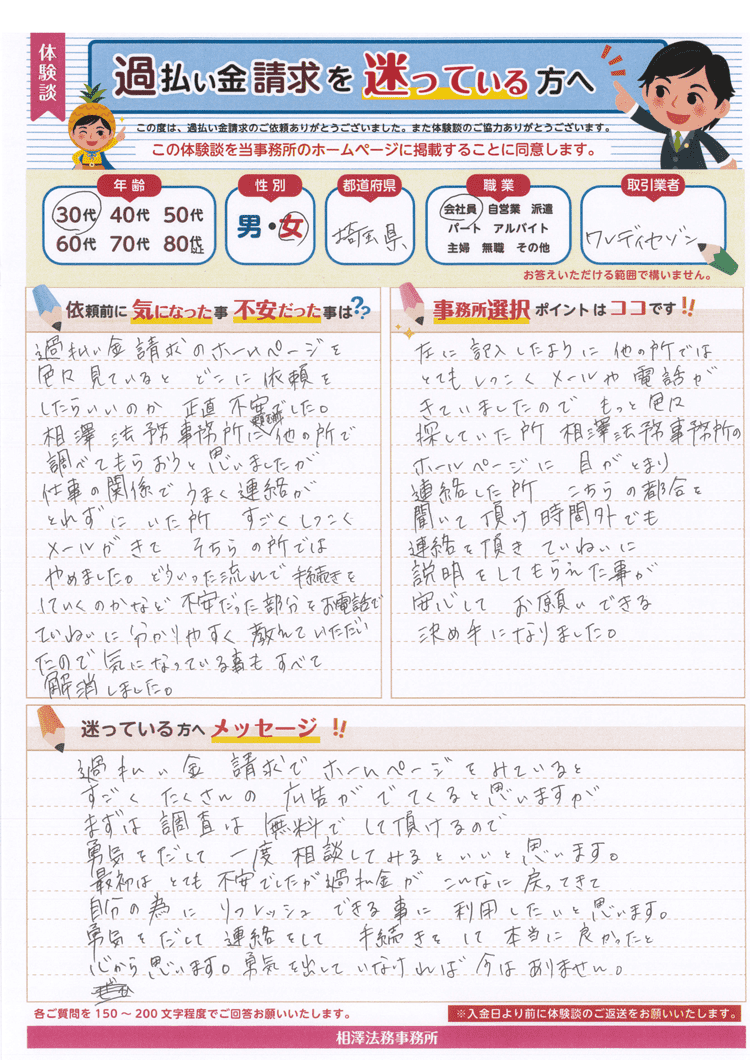 体験談
過払い金請求を迷っている方へ
この度は、過払い金請求のご依頼ありがとうございました。また体験談のご協力ありがとうございます。
この体験談を当事務所のホームページに掲載することに同意します。
年齢
30代 40代 50代
60代 70代 80代以上
性別
男・女
都道府県
埼玉県
職業
会社員 自営業 派遣
パート アルバイト
主婦 無職 その他
取引業者
クレディセゾン
お答えいただける範囲で構いません。
依頼前に気になった事 不安だった事は??
過払い金請求のホームページを
色々見ていると どこに依頼を
したらいいのか 正直 不安でした。
相澤法務事務所に依頼前 他の所で
調べてもらおうと思いましたが
仕事の関係でうまく連絡が
とれずに いた所 すごくしつこく
メールがきて そちらの所では
やめました。どういった流れで手続きを
していくのかなど 不安だった部分をお電話で
ていねいに分かりやすく 教えていただい
たので気になっている事もすべて
解消しました。
事務所選択ポイントはココです!!
左に記入したように他の所では
とてもしつこくメールや電話が
きていましたので もっと色々
探していた所 相澤法務事務所の
ホールページに 目がとまり
連絡した所 こちらの都合を
聞いて頂け時間外でも
連絡を頂き ていねいに
説明をしてもらえた事が
安心して お願いできる
決め手になりました。
迷っている方へメッセージ!!
過払い金 請求でホームページをみていると
すごくたくさんの広告がでてくると思いますが
まずは 調査は 無料でして頂けるので
勇気をだして 一度相談してみるといいと思います。
最初は とても不安でしたが過払金が こんなに戻ってきて
自分の為に リフレッシュできる事に利用したいと思います。
勇気をだして 連絡をして 手続きをして本当に良かったと
心から思います。勇気を出していなければ今はありません。
各ご質問を150～200文字程度でご回答お願いいたします。
※入金日より前に体験談のご返送をお願いいたします。
相澤法務事務所